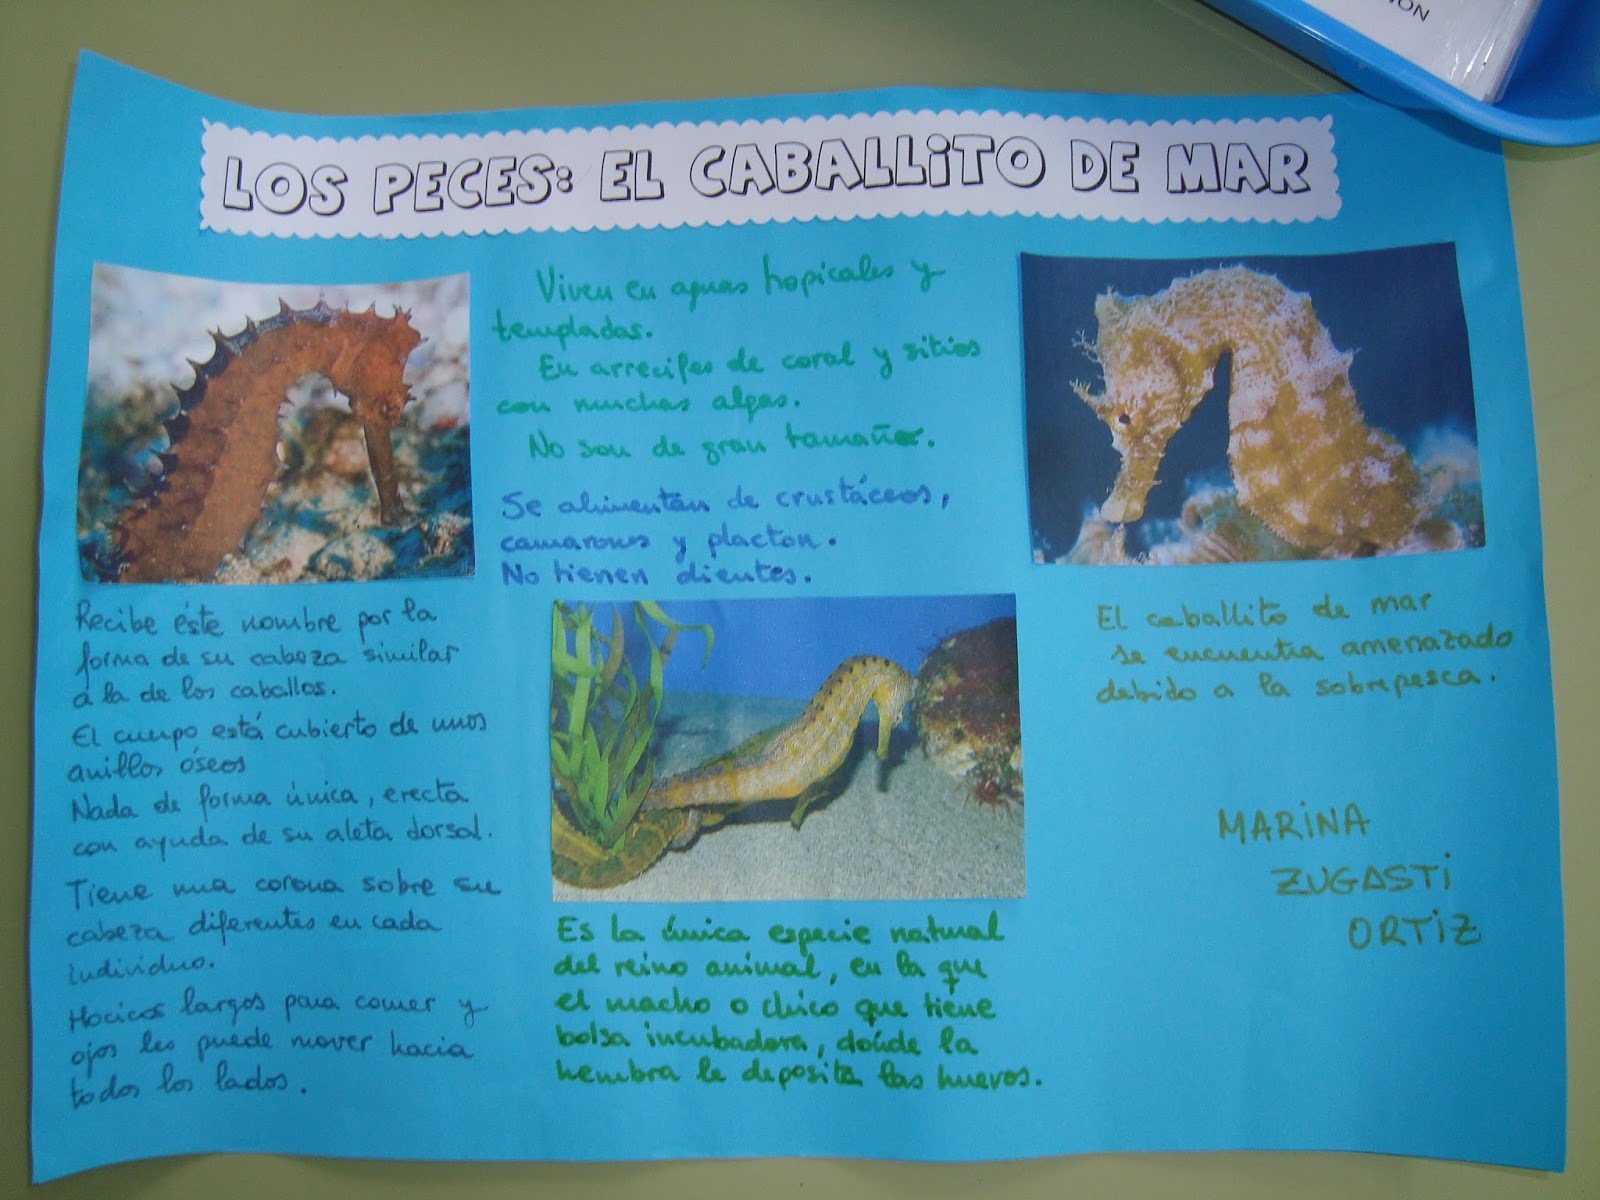 LOS PECES: EL CABALLITO DE MAR
Recibe éste nombre por la
forma de su cabeza similar
a la de los caballos.
El cuerpo está cubierto de unos
anillos óseos
Nada de forma única, erecta
con ayuda de su aleta dorsal.
Tiene una corona sobre su
cabeza diferentes en cada
individuo.
Hocicos largos para comer y
ojos les puede mover hacia
todos los lados.
Viven en aguas tropicales y
templadas.
En arrecifes de coral y sitios
con muchas algas.
No son de gran tamaño.
Se alimentan de crustáceos,
camarones y placton.
No tienen dientes.
Es la única especie natural
del reino animal, en la que
el macho o chico que tiene
bolsa incubadora, dónde la
hembra le deposita las huevos.
El caballito de mar
se encuentra amenazado
debido a la sobrepesca.
MARINA
ZUGASTI
ORTIZ